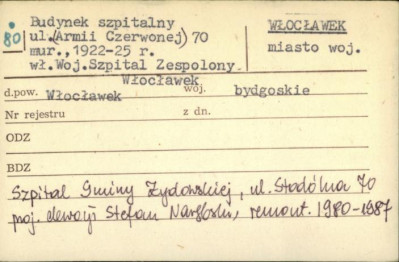 80
Budynek szpitalny
ul.(Armii Czerwonej) 70
mur., 1922-25 r.
wł.Woj.Szpital Zespolony
Włocławek
WŁOCŁAWEK
miasto woj.
d.pow. Włocławek woj. bydgoskie
Nr rejestru z dn.
ODZ
BDZ
Szpital Gminy Żydowskiej, ul. Stodólna 70
proj. elewacji Stefan Narębski, remont. 1980-1987